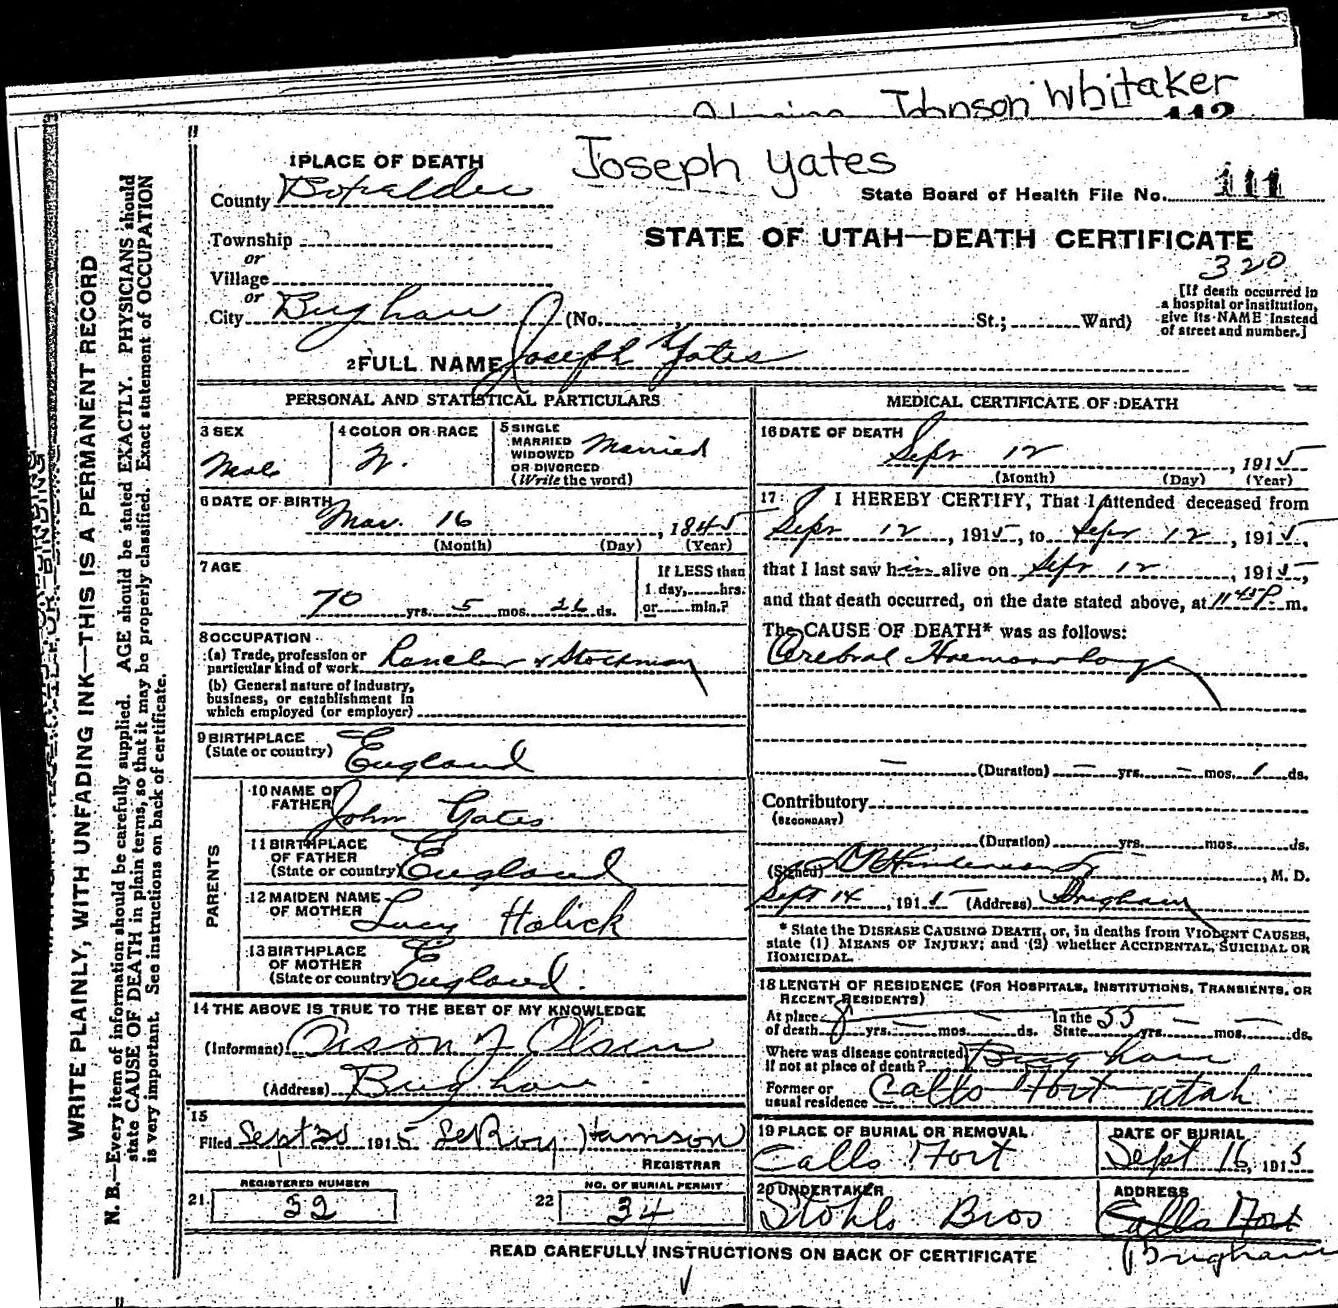 Johnson Whitaker
112
Joseph Yates
1 PLACE OF DEATH
County Boxelder
State Board of Health File No. 111
Township
or
Village
or
City Brigham (No. St.; Ward)
STATE OF UTAH—DEATH CERTIFICATE
320
[If death occurred in
a hospital or institution,
give its NAME instead
of street and number.]
2 FULL NAME Joseph Yates
PERSONAL AND STATISTICAL PARTICULARS
3 SEX
Male
4 COLOR OR RACE
W.
5 SINGLE
MARRIED
WIDOWED
OR DIVORCED
(Write the word)
Married
6 DATE OF BIRTH
Mar. 16, 1845
(Month) (Day) (Year)
7 AGE
70 yrs. 5 mos. 26 ds.
If LESS than
1 day, hrs.
or min.?
8 OCCUPATION
(a) Trade, profession or
particular kind of work Rancher & Stockman
(b) General nature of industry,
business, or establishment in
which employed (or employer)
9 BIRTHPLACE
(State or country) England
PARENTS
10 NAME OF
FATHER John Yates
11 BIRTHPLACE
OF FATHER
(State or country) England
12 MAIDEN NAME
OF MOTHER Lucy Holick
13 BIRTHPLACE
OF MOTHER
(State or country) England.
14 THE ABOVE IS TRUE TO THE BEST OF MY KNOWLEDGE
(Informant) Olsen
(Address) Brigham
15
Filed Sept 20 1915 LeRoy Hamson
REGISTRAR
21 REGISTERED NUMBER
32
22 NO. OF BURIAL PERMIT
34
MEDICAL CERTIFICATE OF DEATH
16 DATE OF DEATH
Sept 12, 1915
(Month) (Day) (Year)
17 I HEREBY CERTIFY, That I attended deceased from
Sept 12, 1915, to Sept 12, 1915,
that I last saw him alive on Sept 12, 1915,
and that death occurred, on the date stated above, at 11 45 P. m.
The CAUSE OF DEATH* was as follows:
Cerebral Haemorrhage
(Duration) — yrs. — mos. 1 ds.
Contributory
(SECONDARY)
(Duration) yrs. mos. ds.
(Signed), M. D.
Sept 14, 1915 (Address) Brigham
* State the DISEASE CAUSING DEATH, or, in deaths from VIOLENT CAUSES,
state (1) MEANS OF INJURY; and (2) whether ACCIDENTAL, SUICIDAL OR
HOMICIDAL.
18 LENGTH OF RESIDENCE (FOR HOSPITALS, INSTITUTIONS, TRANSIENTS, OR
RECENT RESIDENTS)
At place
of death 8 yrs. mos. — ds. In the
State 55 yrs. — mos. — ds.
Where was disease contracted,
if not at place of death? Brigham
Former or
usual residence Calls Fort Utah
19 PLACE OF BURIAL OR REMOVAL
Calls Fort
DATE OF BURIAL
Sept 16, 1915
20 UNDERTAKER
Stohls Bros
ADDRESS
Calls Fort
Brigham
READ CAREFULLY INSTRUCTIONS ON BACK OF CERTIFICATE
WRITE PLAINLY, WITH UNFADING INK—THIS IS A PERMANENT RECORD
N. B.—Every item of information should be carefully supplied. AGE should be stated EXACTLY. PHYSICIANS should
state CAUSE OF DEATH in plain terms, so that it may be properly classified. Exact statement of OCCUPATION
is very important. See instructions on back of certificate.